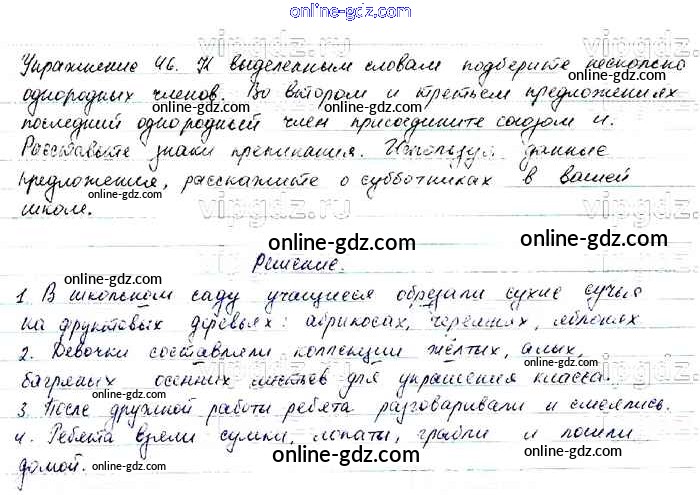 online-gdz.com
Упражнение 46. К выделенным словам подберите несколько
однородных членов. Во втором и третьем предложениях
последний однородный член присоедините союзом и.
Расставьте знаки препинания. Используя данные
предложения, расскажите о субботниках в вашей
школе.
online-gdz.com
online-gdz.com
online-gdz.com
vipgdz.ru
online-gdz.com
online-gdz.com
Решение.
1. В школьном саду учащиеся обрезали сухие сучья
на фруктовых деревьях: абрикосах, черешнях, яблонях
2. Девочки составляли коллекции жёлтых, алых,
багряных осенних листьев для украшения класса.
3. После дружной работы ребята разговаривали и смеялись.
4. Ребята взяли сумки, лопаты, грабли и пошли
домой.
online-gdz.com
online-gdz.com
online-gdz.com
online-gdz.com